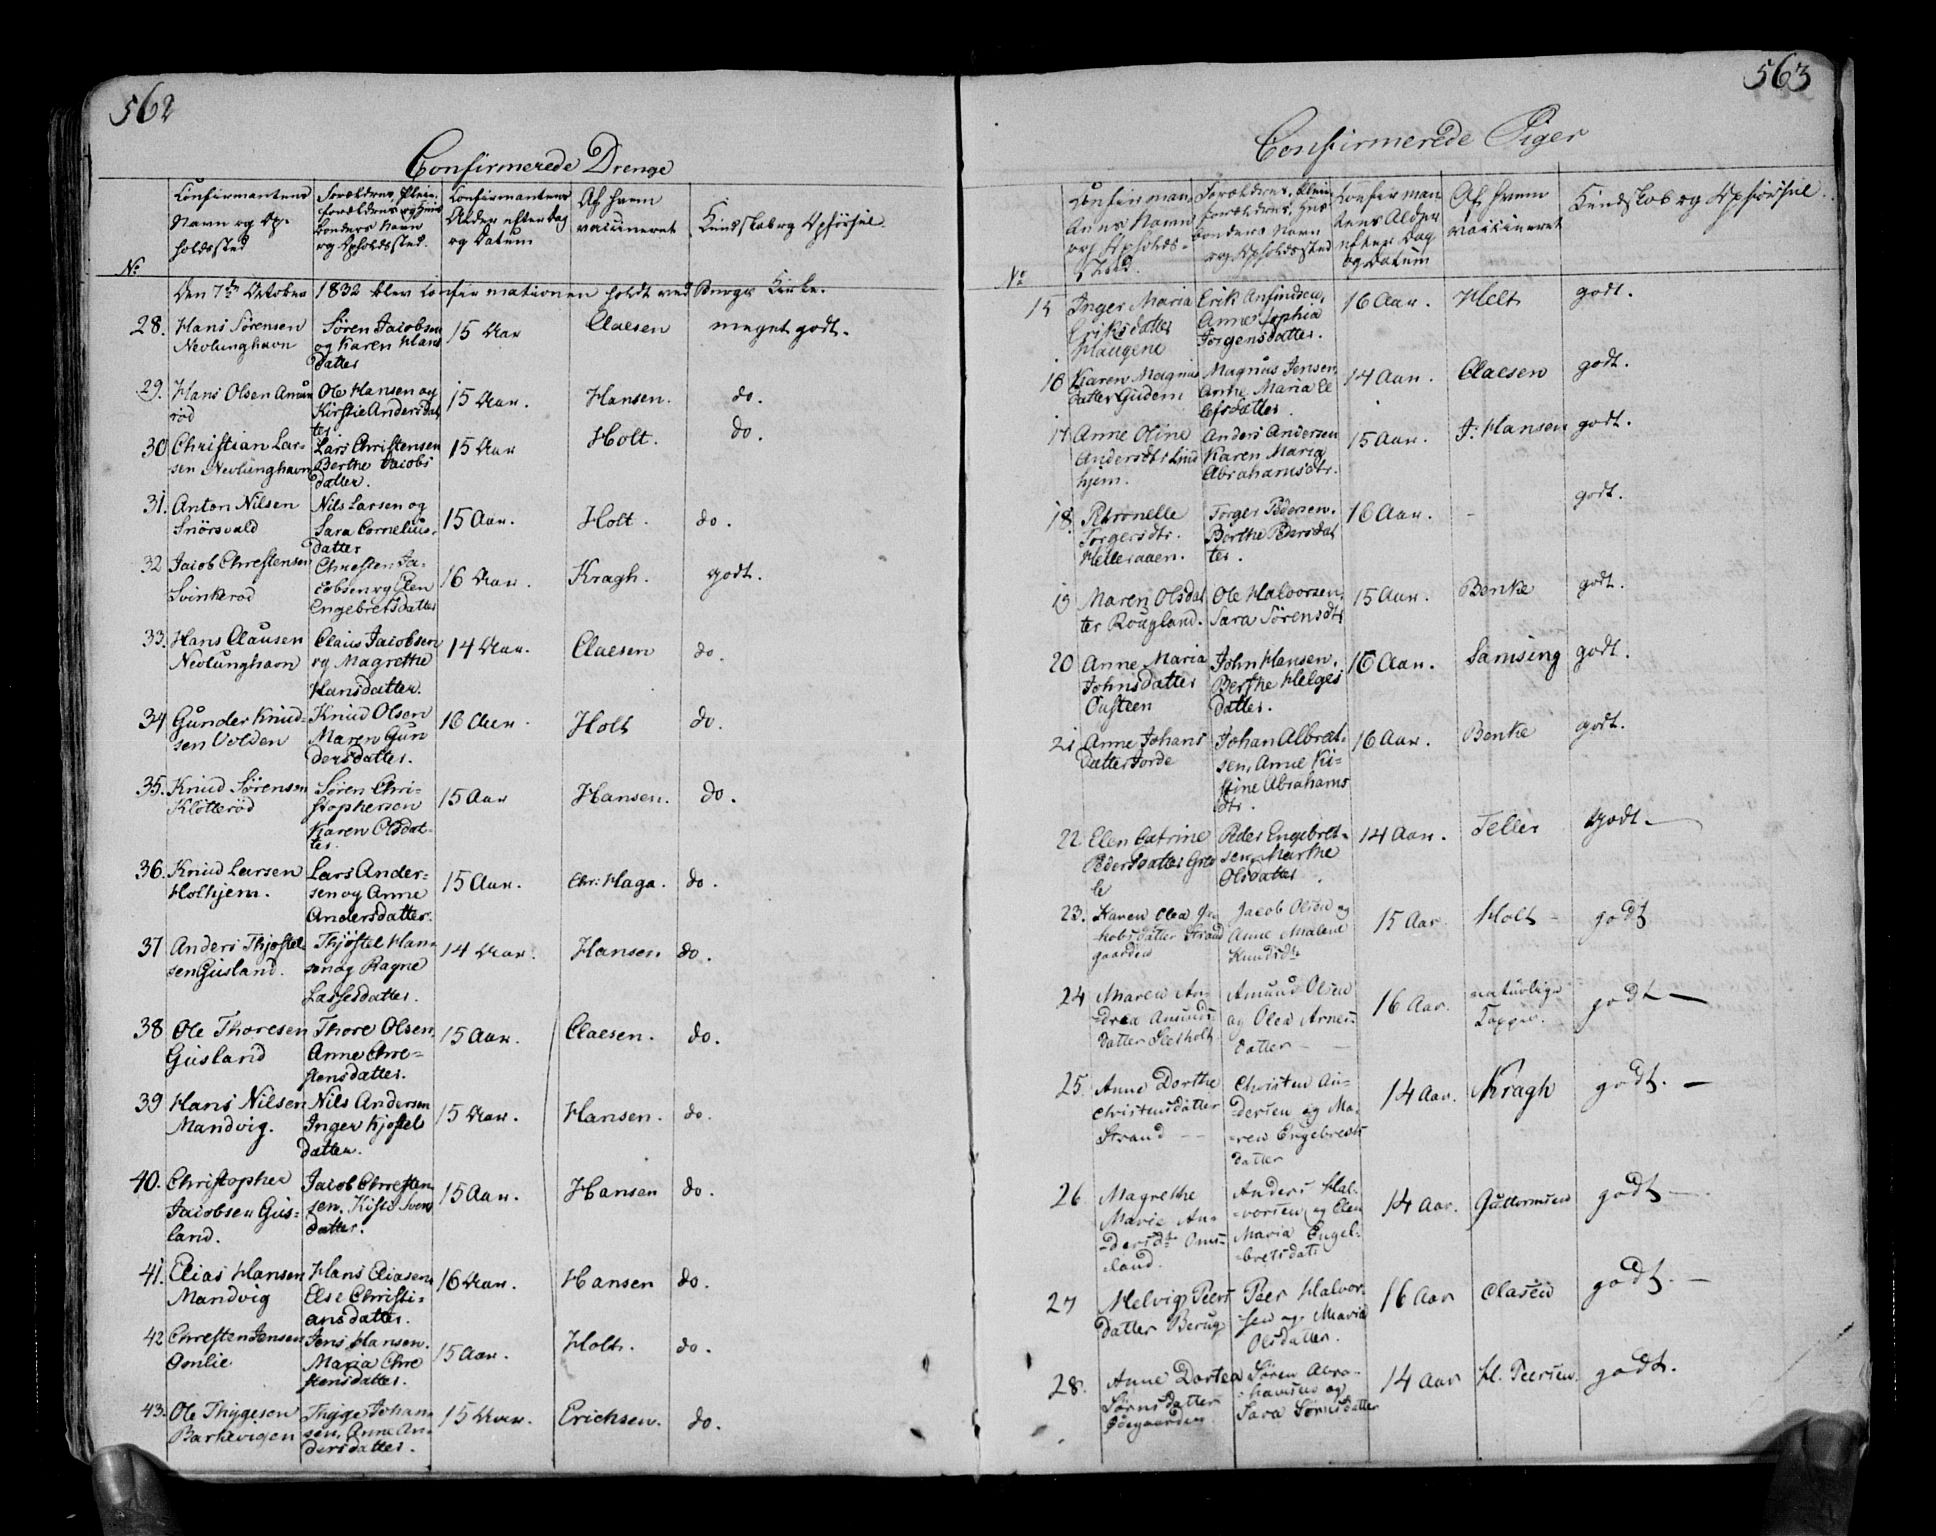 562
Confirmerede Drenge
Confirmantens
Navn og Op-
holdssted
Forældres, Pleie
forældres og Huus
bonders Navn
og Opholdssted.
Confirmantens
Alder efter dag
og Datum
Af hvem
vaccineret
Kundskab og Opførsel.
No
Den 7de October 1832 blev Confirmationen holdt ved Bergs Kirke.
28. Hans Sørensen
Nevlunghavn
Søren Jacobsen
og Karen Hans
datter
15 Aar
Claesen
meget godt.
29. Hans Olsen Amun
rød
Ole Hansen og
Kirstie Andersdat
ter
15 Aar.
Hansen.
do.
30 Christian Lar-
sen Nevlunghavn
Lars Christensen
Berthe Jacobs
datter.
15 Aar
Holt.
do.
31. Anton Nilsen
Snörsvald
Nils Larsen og
Sara Cornelius-
datter
15 Aar.
Holt.
do.
32 Jacob Chrestensen
Svinkerød
Chresten Ja-
cobsen og Elen
Engebretsdatter
16 Aar.
Kragh.
godt.
33. Hans Clausen
Nevlunghavn
Claus Jacobsen
og Magrethe
Hansdatter.
14 Aar.
Claesen
do.
34 Gunder Knud-
sen Volden
Knud Olsen
Maren Gun
dersdatter.
16 Aar.
Holt
do.
35. Knud Sørensen
Klotterød
Søren Chri-
stophersen
Karen Olsdat-
ter.
15 Aar
Hansen.
do.
36. Knud Larsen
Holhjem.
Lars Ander-
sen og Anne
Andersdatter.
15 Aar.
Chr: Haga.
do.
37 Anders Thjøstel
sen Gusland.
Thjøstel Han-
sen og Ragne
Lassesdatter.
14 Aar.
Hansen
do.
38 Ole Thoresen
Gusland
Thore Olsen,
Anne Chre-
stensdatter.
15 Aar.
Claesen.
do.
39 Hans Nilsen
Mandvig.
Nils Andersen
Inger Kjøstel
datter.
15 Aar.
Hansen.
do.
40. Christopher
Jacobsen Gus-
land.
Jacob Chresten
sen, Kirsti Svens
datter.
15 Aar.
Hansen
do.
41. Elias Hansen
Mandvig
Hans Eliasen,
Else Christi-
ansdatter.
16 Aar.
Hansen
do.
42 Chresten Jensen
Omlie
Jens Hansen.
Maria Chre
stensdatter.
15 Aar.
Holt.
do.
43. Ole Thygesen
Barkevigen
Thyge Johan-
sen, Anne An-
dersdatter.
15 Aar.
Erichsen.
do.
563
Confirmerede Piger
Confirman
tens Navn
og Opholds-
sted.
Forældres, Pleie
forældres, Huus
bonders Navn
og Opholdssted
Confirman
tens Alder
efter Dag
og Datum
Af hvem
vaccineret
Kundskab og Opførsel.
No
15 Inger Maria
Eriksdatter
Haugene
Erik Anfindsen,
Anne Sophia
Jørgensdatter.
16 Aar.
Holt
godt.
16 Karen Magnus
datter Gudem
Magnus Jensen,
Anne Maria El
lefsdatter.
14 Aar.
Claesen
godt.
17 Anne Oline
Andersdtr Lind
hjem.
Anders Andersen
Karen Maria
Abrahamsdtr.
15 Aar.
J: Hansen
godt.
18. Petronelle
Torgersdtr.
Helleraaen.
Torger Pedersen.
Berthe Pedersdat
ter.
16 Aar.
-
godt.
19 Maren Olsdat
ter Rougland.
Ole Halvorsen,
Sara Sørensdtr
15 Aar.
Benke
godt.
20 Anne Maria
Johnsdatter
Ousteen
John Hansen,
Berthe Helges
datter.
16 Aar.
Samsing
godt.
21 Anne Johans
datter Jorde
Johan Albret-
sen, Anne Ki-
stine Abrahams
dtr.
16 Aar.
Benke
godt.
22 Elen Catrine
Pedersdatter Gret
le
Peder Engebret-
sen, Marthe
Olsdatter.
14 Aar.
Teller
godt.
23. Karen Olea Ja-
kobsdatter Strand
gaarden
Jacob Olsen og
Anne Malene
Knudsdtr
15 Aar.
Holt -
godt
24 Maren An-
drea Amunds-
datter Sletholt
Amund Olsen
og Olea Arnes-
datter - -
16 Aar.
naturlige
Kopper.
godt -
25. Anne Dorthe
Christensdatter
Strand - -
Christen An-
dersen og Ma-
ren Engebrets
datter
14 Aar.
Kragh
godt. -
26. Magrethe
Marie An-
dersdtr Oms-
land.
Anders Hal-
vorsen og Elen
Maria Engel-
bretsdatr
14 Aar.
Guttormsen
godt -
27 Helvig Peers
datter Berug
Peer Halvor-
sen og Maria
Olsdatter.
16 Aar
Clasen
godt. -
28. Anne Dortea
Sørnsdatter
Ødegaarden
Søren Abra-
hamsen og
Sara Sørnsdatter
14 Aar
H. Peersen.
godt.